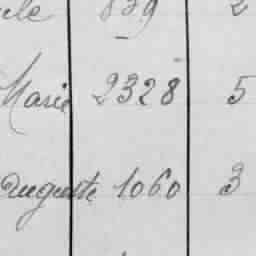 839 2
Marie 2328 5
Auguste 1060 3